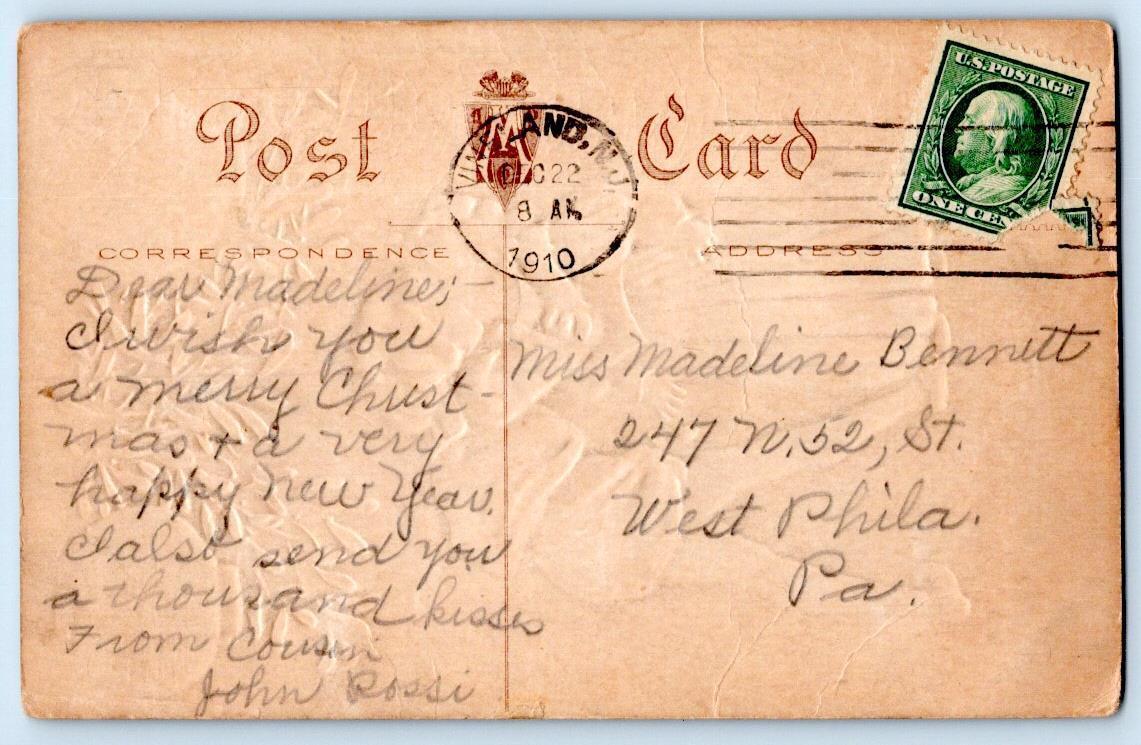 Post Card
VINELAND, N.J.
DEC 22
8 AM
1910
U.S. POSTAGE
ONE CEN
CORRESPONDENCE
ADDRESS
Dear Madeline;-
I wish you
a merry Christ-
mas + a very
happy New Year.
I also send you
a thousand kisses
From Cousin
John Rossi
Miss Madeline Bennett
247 N. 52, St.
West Phila.
Pa.